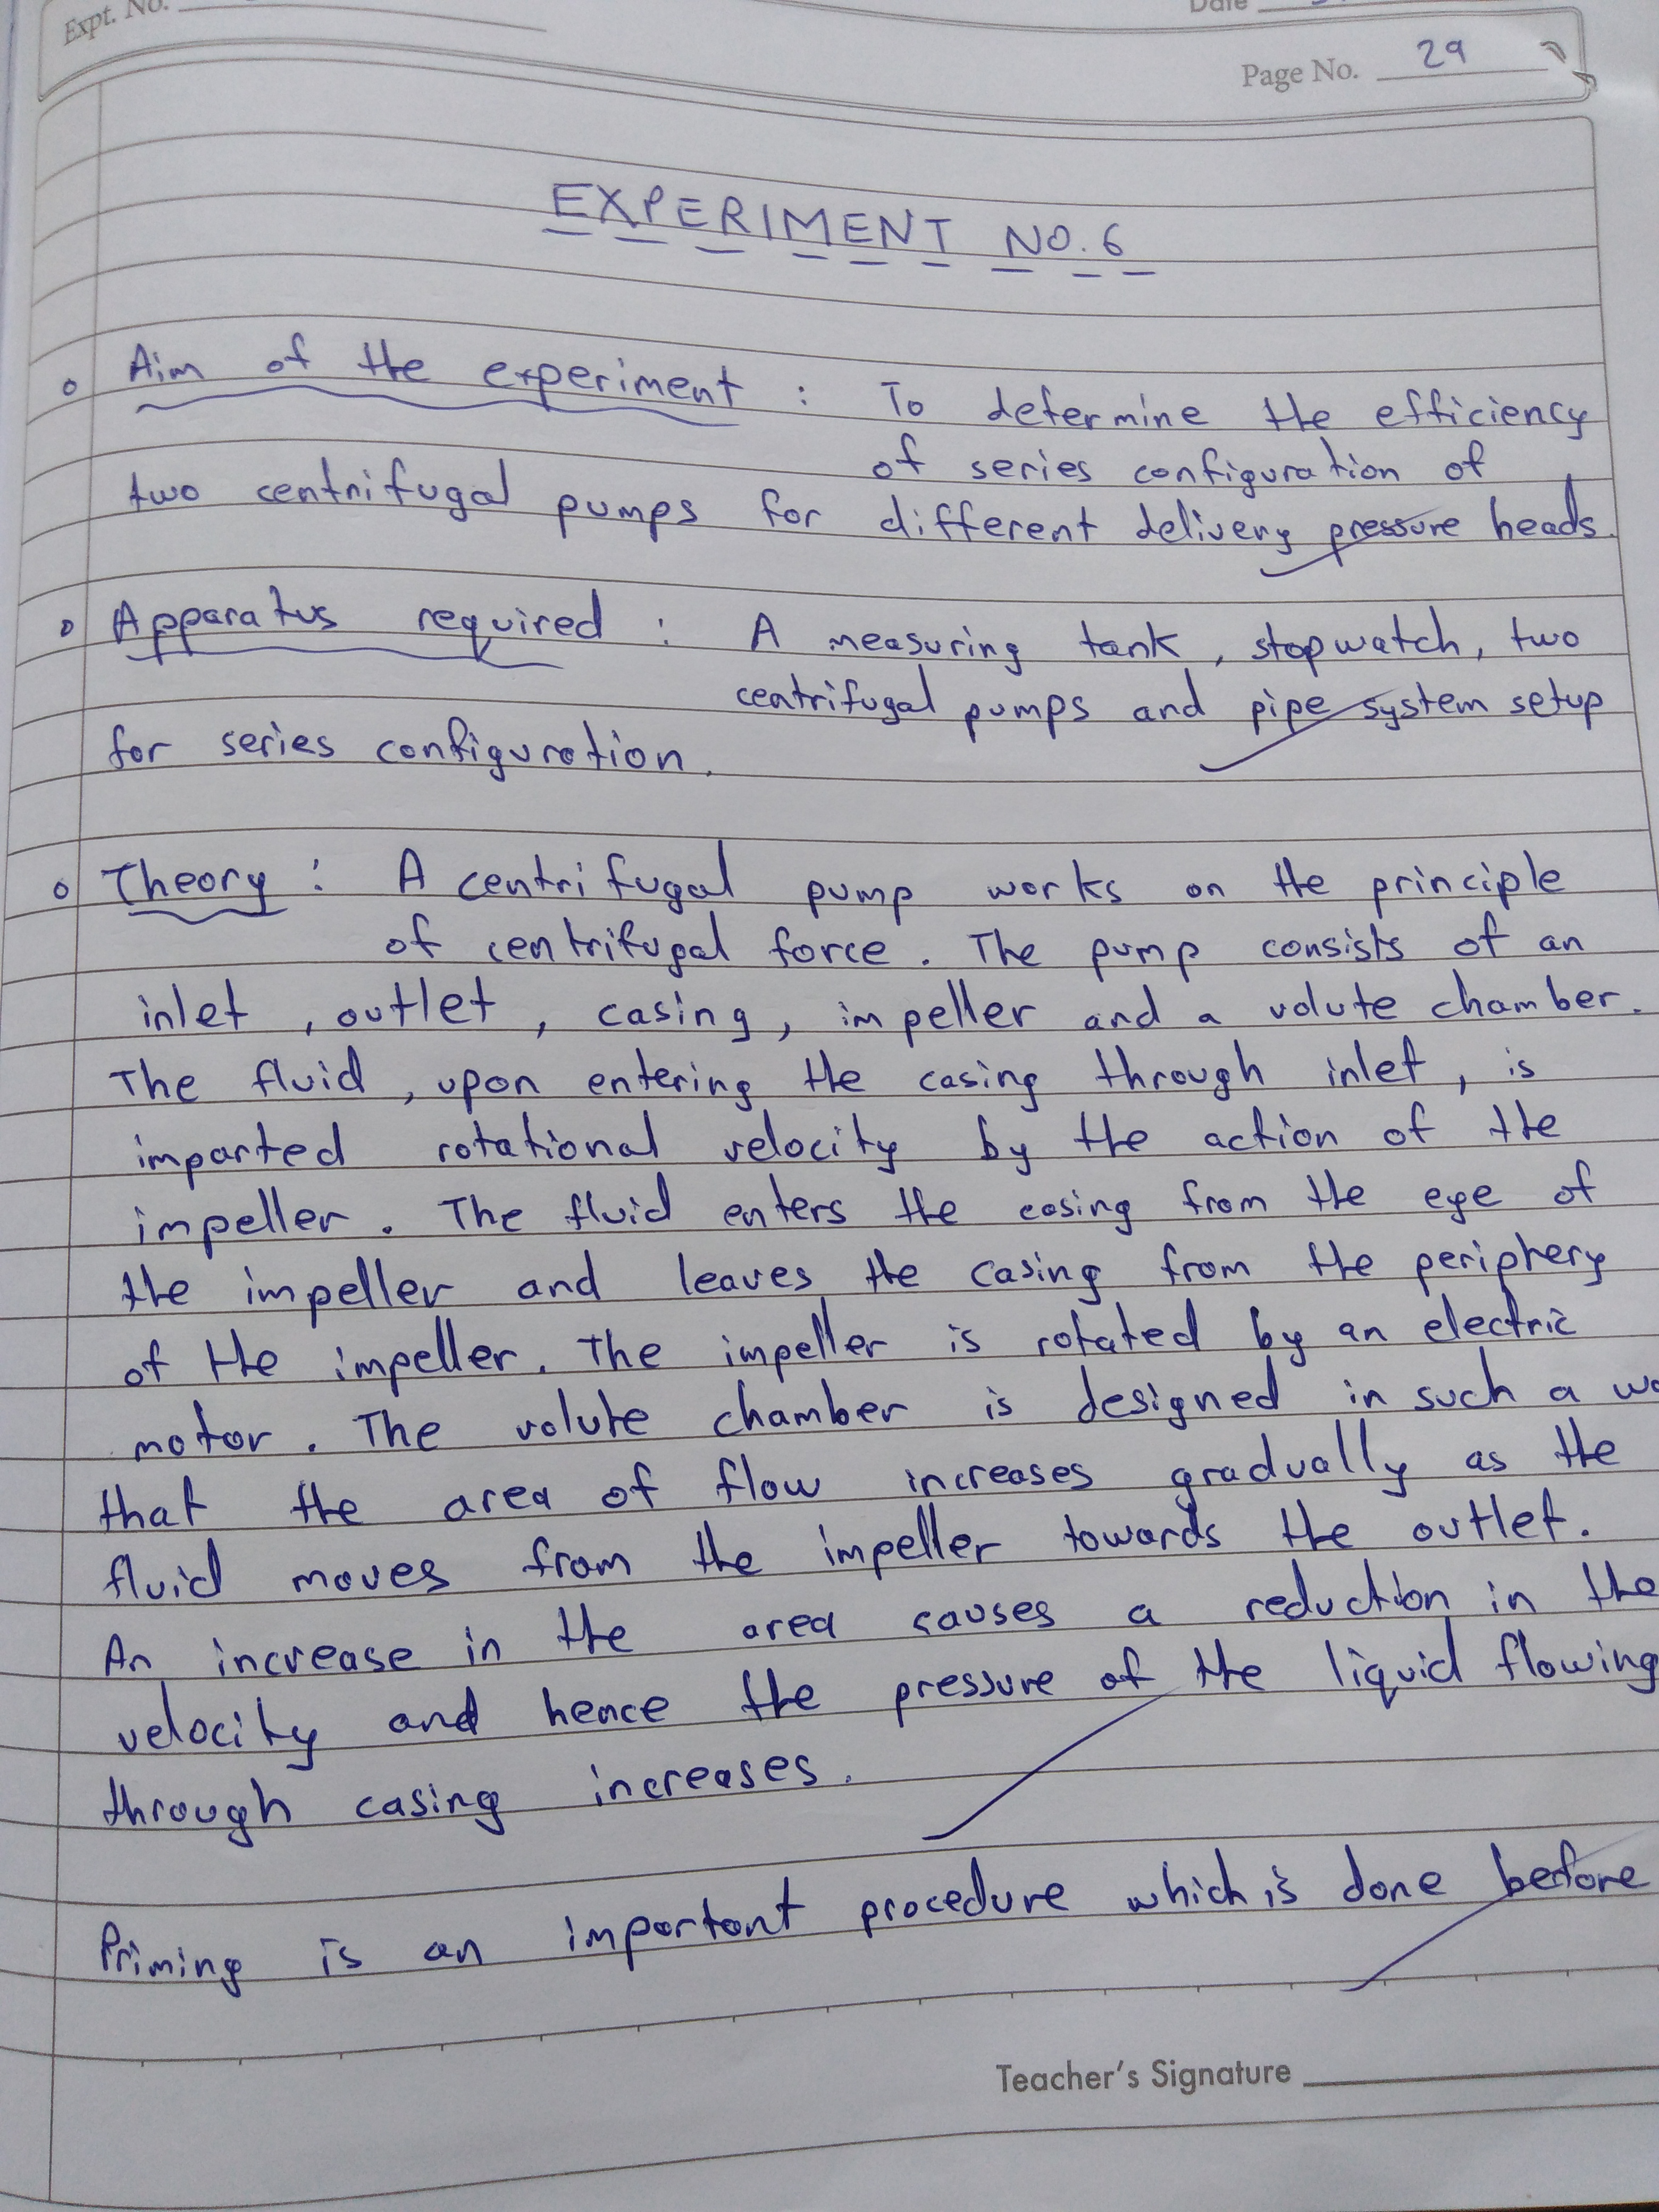 Expt. No.
Date
Page No. 29
EXPERIMENT NO. 6
Aim of the experiment : To determine the efficiency
of series configuration of
two centrifugal pumps for different delivery pressure heads.
Apparatus required : A measuring tank, stopwatch, two
centrifugal pumps and pipe system setup
for series configuration.
Theory : A centrifugal pump works on the principle
of centrifugal force. The pump consists of an
inlet, outlet, casing, impeller and a volute chamber.
The fluid, upon entering the casing through inlet, is
imparted rotational velocity by the action of the
impeller. The fluid enters the casing from the eye of
the impeller and leaves the casing from the periphery
of the impeller. The impeller is rotated by an electric
motor. The volute chamber is designed in such a
that the area of flow increases gradually as the
fluid moves from the impeller towards the outlet.
An increase in the area causes a reduction in the
velocity and hence the pressure of the liquid flowing
through casing increases.
Priming is an important procedure which is done before
Teacher's Signature